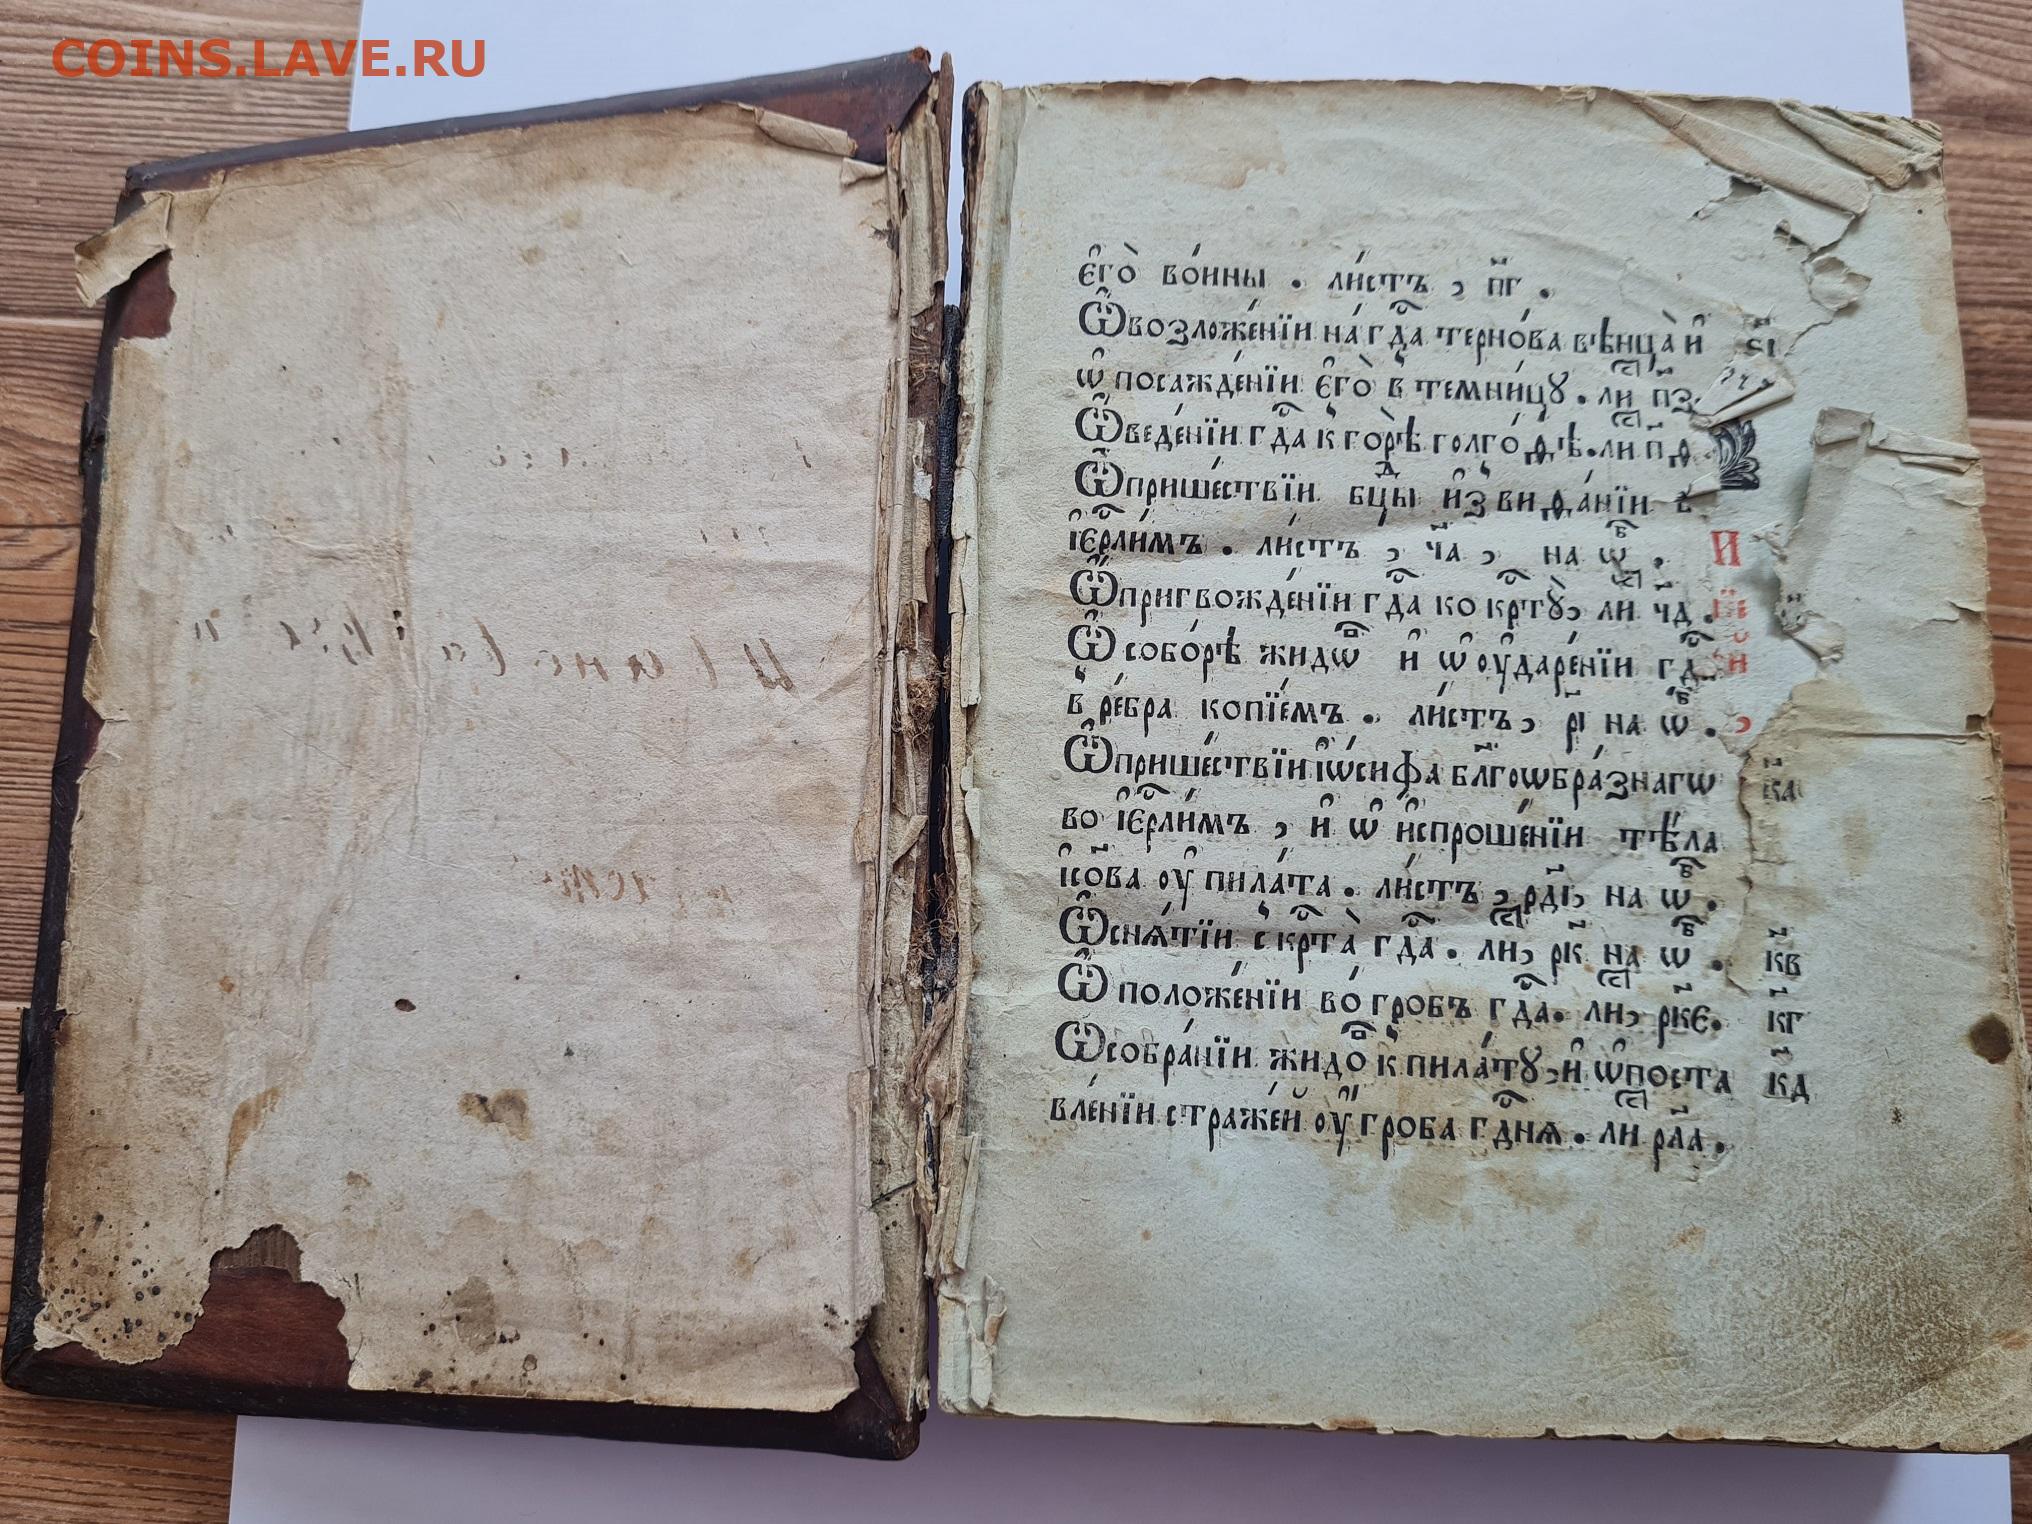 COINS.LAVE.RU
є҆го̀ во́ины . ли́стъ , п҃г .
Ѽ возложе́нїи на́ гдⷭ҇а терно́ва вѣнца̀ и҆
ѽ посажде́нїи є҆го̀ в̾ темни́цꙋ . лиⷭ҇ п҃з
Ѽ веде́нїи гдⷭ҇а к̾ го́рѣ голго́ѳѣ . лиⷭ҇ п҃ѳ
Ѽ прише́ствїи бцⷣы и҆з̾ виѳа́нїи в̾
і҆єрⷭ҇ли́мъ . ли́стъ , ч҃а , на ѡⷠ .
Ѽ пригвожде́нїи гдⷭ҇а ко крⷭ҇тꙋ̀ , лиⷭ҇ ч҃д .
Ѽ собо́рѣ жидѡⷡ и҆ ѽ ᲂу҆даре́нїи гдⷭ҇а
в̾ ре́бра копїе́мъ . ли́стъ , р҃і на ѡⷠ .
Ѽ прише́ствїи і҆ѡ́сифа бл҃гоѡбра́знагѡ
во і҆єрⷭ҇ли́мъ , и҆ ѽ и҆спроше́нїи тѣ́ла
і҆со́ва ᲂу҆ пила́та . ли́стъ , рд҃і , на ѡⷠ .
Ѽ снѧ́тїи с̾ крⷭ҇та̀ гдⷭ҇а . лиⷭ҇ , р҃к на ѡⷠ .
Ѽ положе́нїи во́ гробъ гдⷭ҇а . лиⷭ҇ , рк҃є .
Ѽ собра́нїи жидоⷡ к̾ пила́тꙋ , и҆ ѽ поста
вле́нїи стражей ᲂу҆ гроба гдⷭ҇нѧ . лиⷭ҇ рл҃а .
И
к҃а
к҃в
к҃г
к҃д